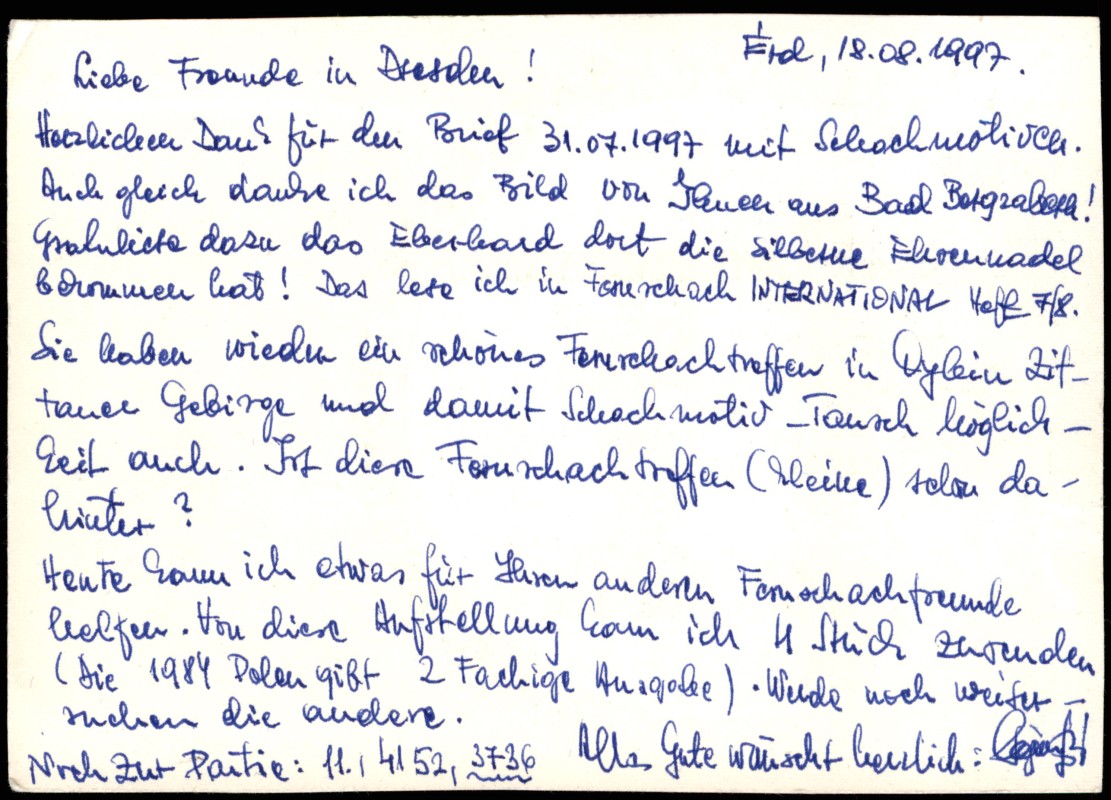 Érd, 18.08.1997.
Liebe Freunde in Dresden!
Herzlichen Dank für den Brief 31.07.1997 mit Schachmotiven.
Auch gleich danke ich das Bild von Ihnen aus Bad Bergzabern!
Grahuliere dazu das Eberhard dort die silberne Ehrennadel
bekommen hat! Das lese ich in Fernschach INTERNATIONAL Heft 7/8.
Sie haben wieden ein schönes Fernschachtreffen in Oybin Zit-
tauer Gebirge und damit Schachmotiv-Tausch möglich-
keit auch. Ist diese Fernschachtreffen (kleine) schon da-
hinter?
Heute kann ich etwas für Ihren anderen Fernschachfreunde
helfen. Von diese Aufstellung kann ich 4 Stück zusenden
(Die 1984 Polen gibt 2 Fachige Ausgabe). Werde noch weiter-
suchen die andere.
Noch zur Partie: 11., 4152, 3736 Alles Gute wünscht herzlich: